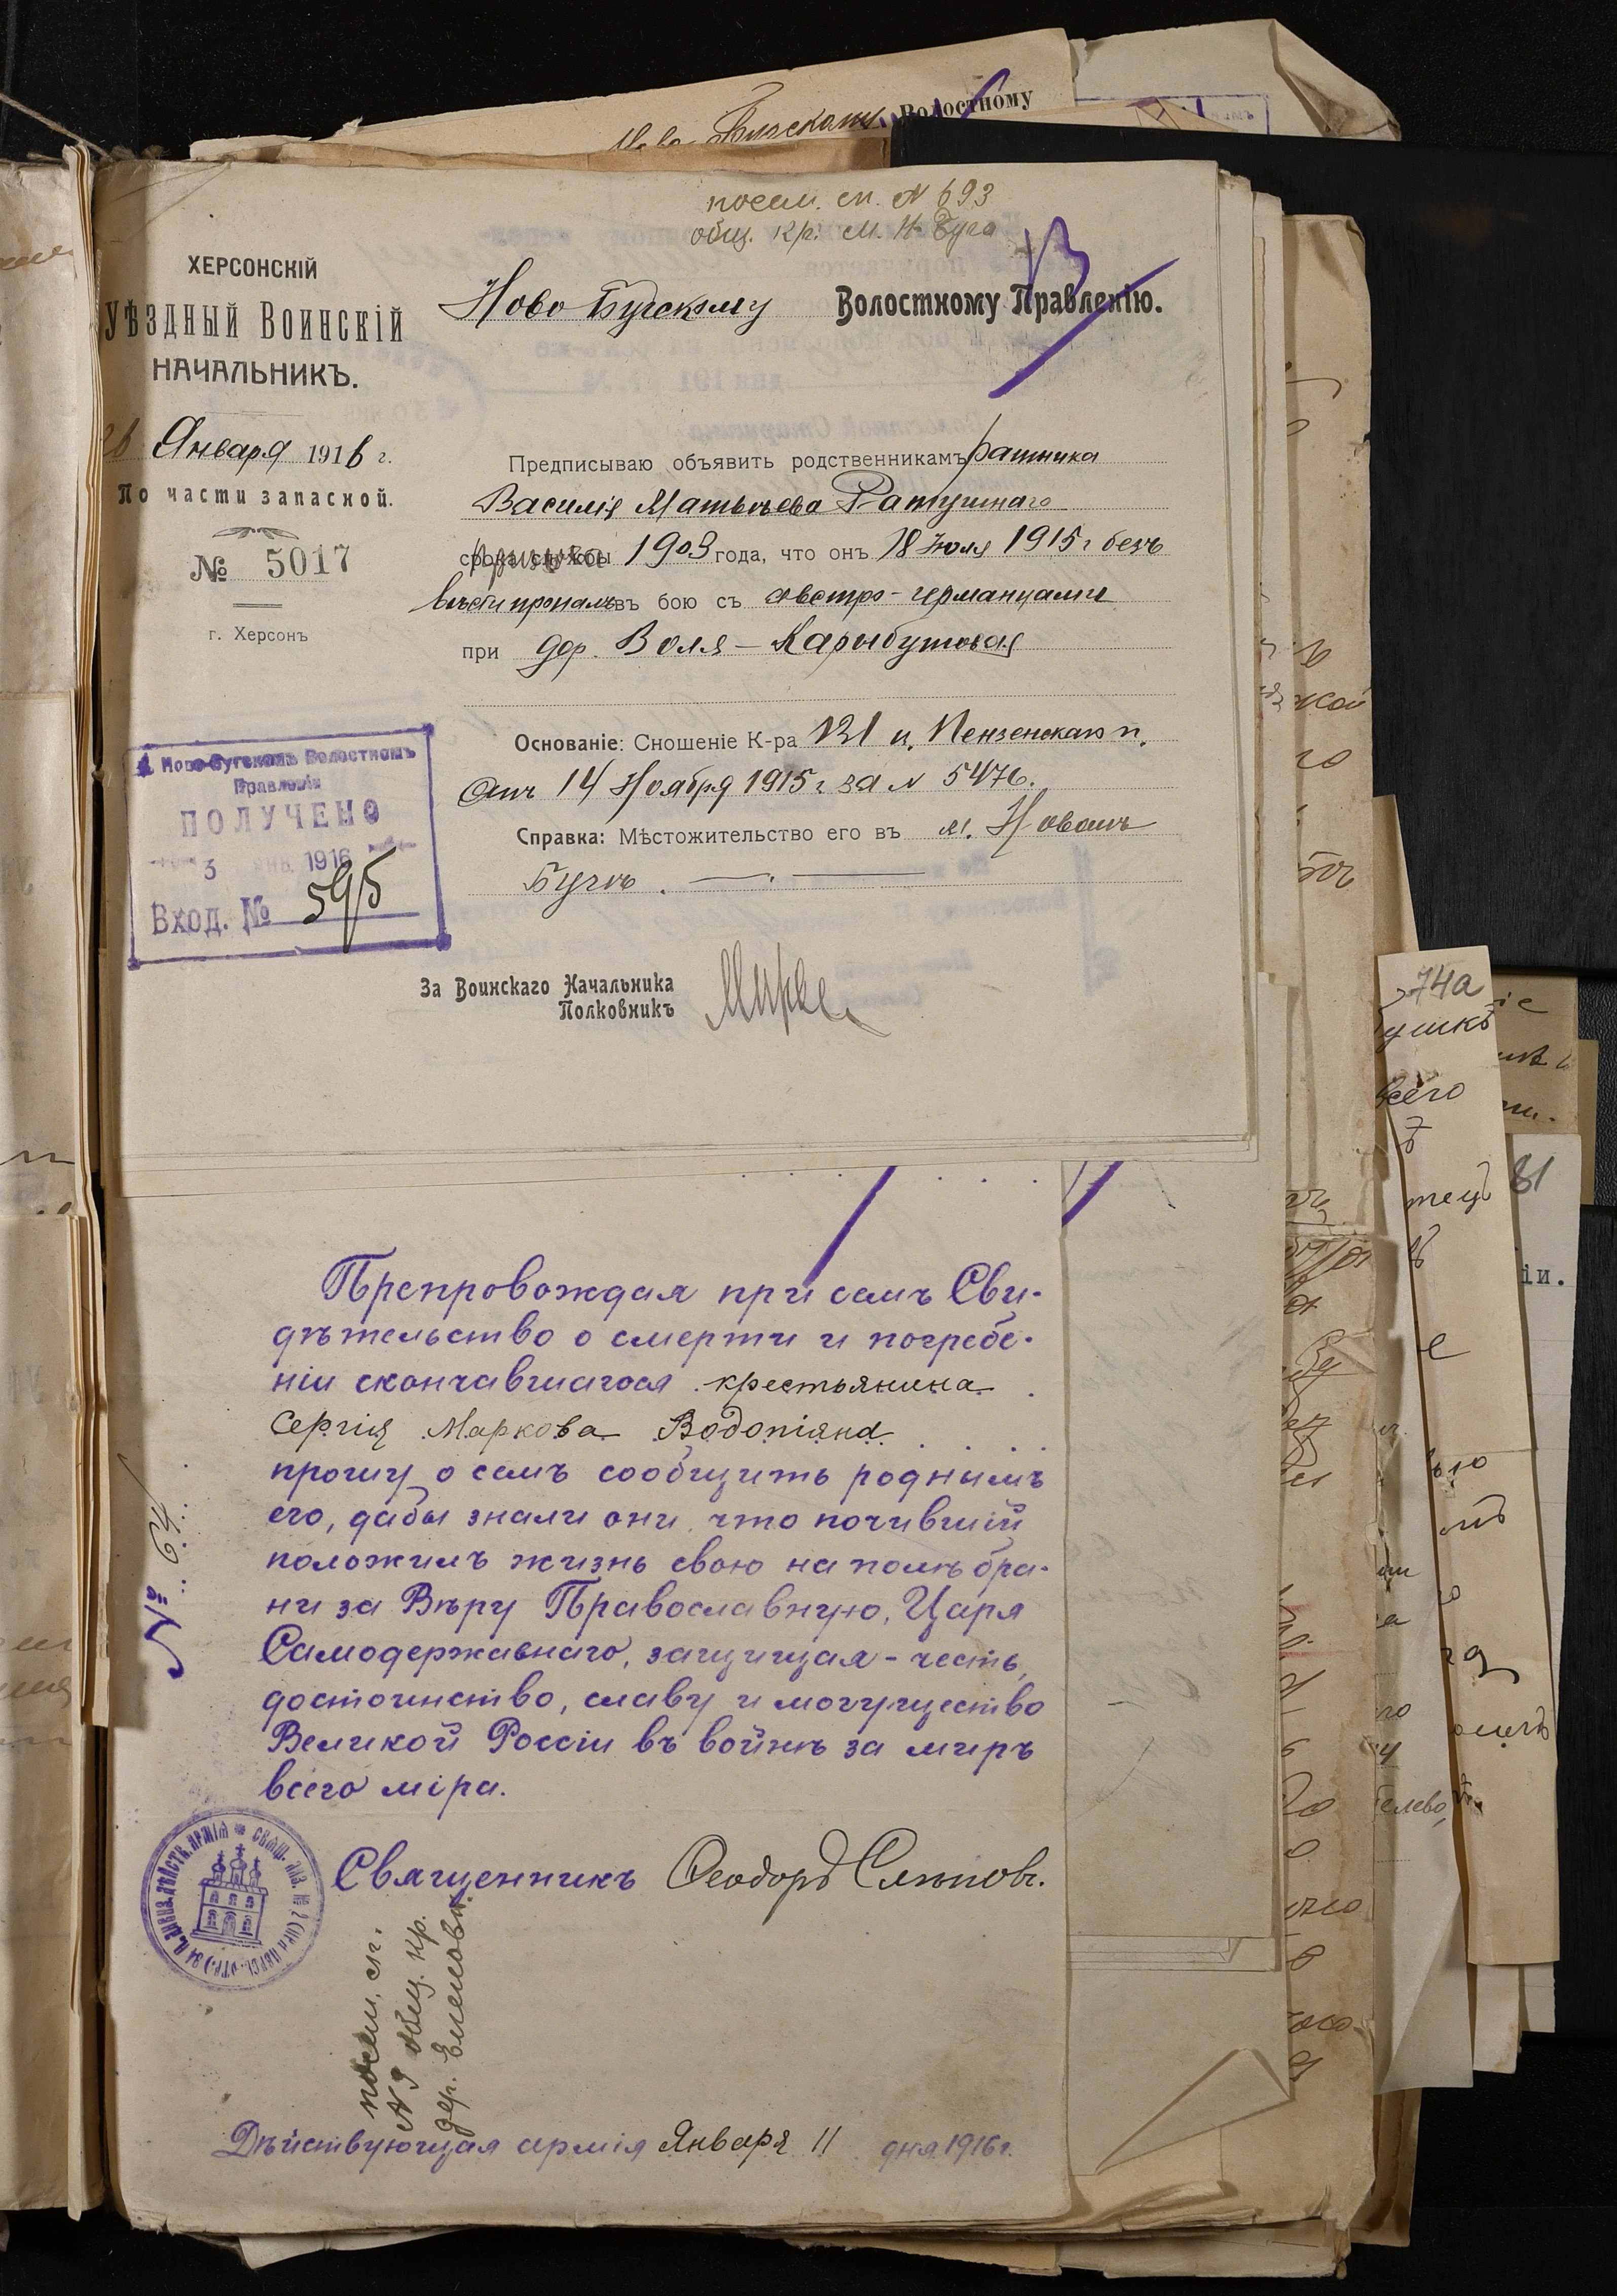 Волостному
посем. сп. N 693
общ. кр. м. Н-Буга
ХЕРСОНСКІЙ
УѢЗДНЫЙ ВОИНСКІЙ
НАЧАЛЬНИКЪ.
Января 1916 г.
По части запасной.
№ 5017
г. Херсонъ
Ново Бугскому Волостному Правленію.
Предписываю объявить родственникамъ ратника
Василія Матвѣева Ратушнаго
срока службы 1903 года, что онъ 18 Іюля 1915 г безъ
вѣсти пропалъ въ бою съ австро-германцами
при дер. Воля-Карыбутовая
Основаніе: Сношеніе К-ра 121 п. Пензенскаго п.
отъ 14 Ноября 1915 г за N 5476.
Справка: Мѣстожительство его въ м. Новомъ
Бугѣ.
Ново-Бугскомъ Волостномъ
Правленіи
ПОЛУЧЕНО
3 ЯНВ. 1916
Вход. № 595
За Воинскаго Начальника
Полковникъ
№ 64
Препровождая при семъ Сви-
дѣтельство о смерти и погребе-
ніи скончавшагося крестьянина
Сергія Маркова Водопіяна
прошу о семъ сообщить роднымъ
его, дабы знали они, что почившій
положилъ жизнь свою на полѣ бра-
ни за Вѣру Православную, Царя
Самодержавнаго, защищая - честь,
достоинство, славу и могущество
Великой Россіи въ войнѣ за миръ
всего міра.
Священникъ Феодоръ
посем. сп.
N 9 общ. кр.
дер.
Дѣйствующая армія Января 11 дня 1916 г.
74а
всего
81
іи.